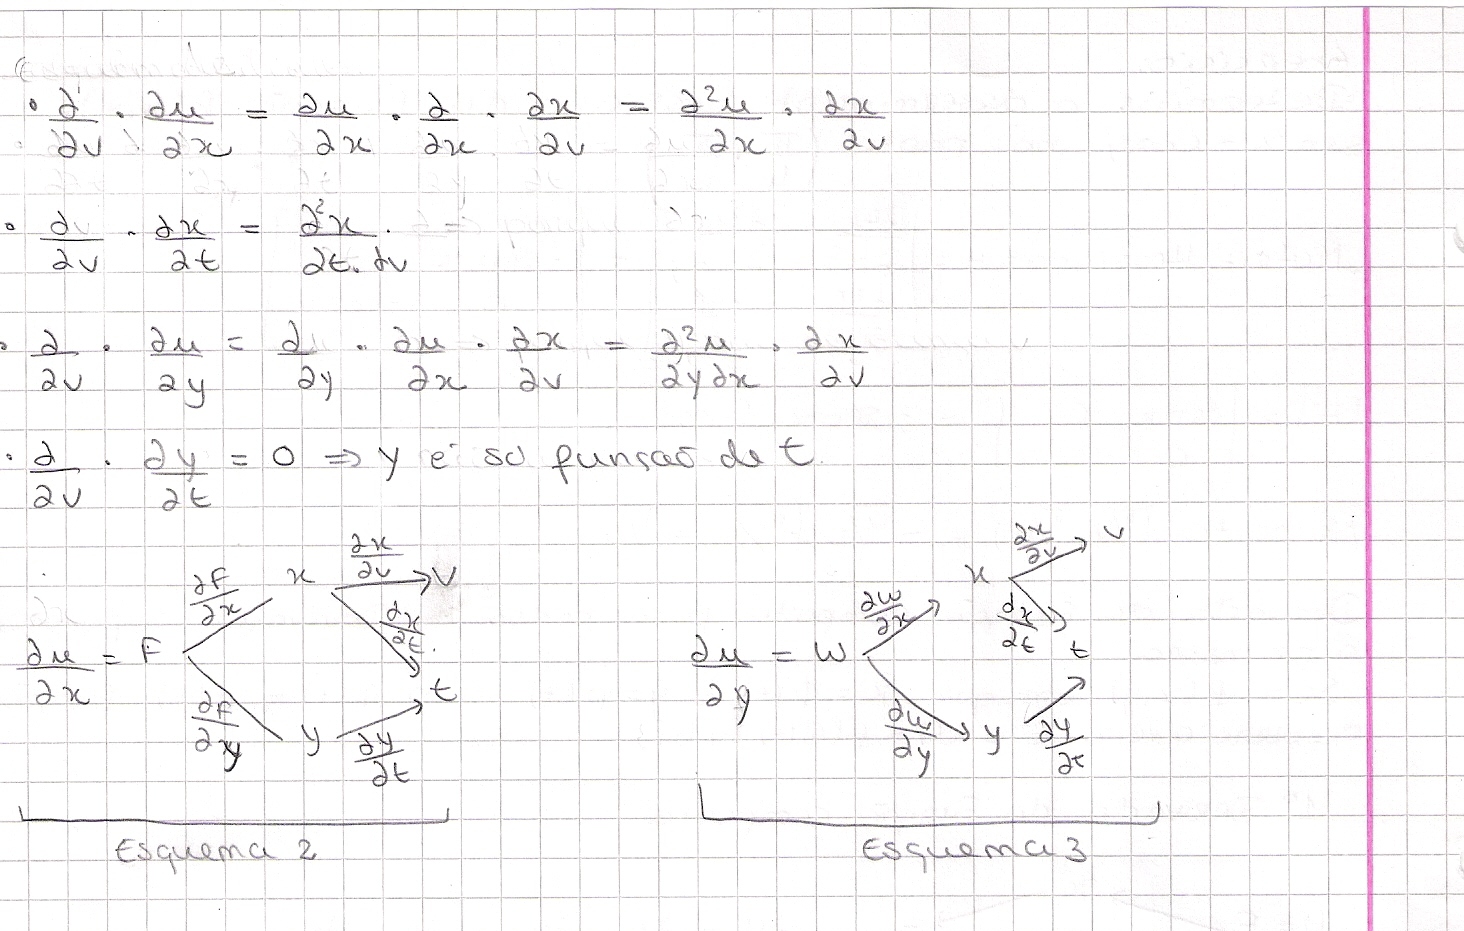 • ∂/∂v · ∂u/∂x = ∂u/∂x · ∂/∂x · ∂x/∂v = ∂²u/∂x · ∂x/∂v
• ∂v/∂v · ∂x/∂t = ∂²x/∂t.∂v
• ∂/∂v · ∂u/∂y = ∂/∂y · ∂u/∂x · ∂x/∂v = ∂²u/∂y∂x · ∂x/∂v
• ∂/∂v · ∂y/∂t = 0 ⇒ y é só função de t.
∂u/∂x = F
∂F/∂x
x
∂x/∂v
v
∂x/∂t
t
∂F/∂y
y
∂y/∂t
Esquema 2
∂u/∂y = W
∂W/∂x
x
∂x/∂v
v
∂x/∂t
t
∂W/∂y
y
∂y/∂t
Esquema 3